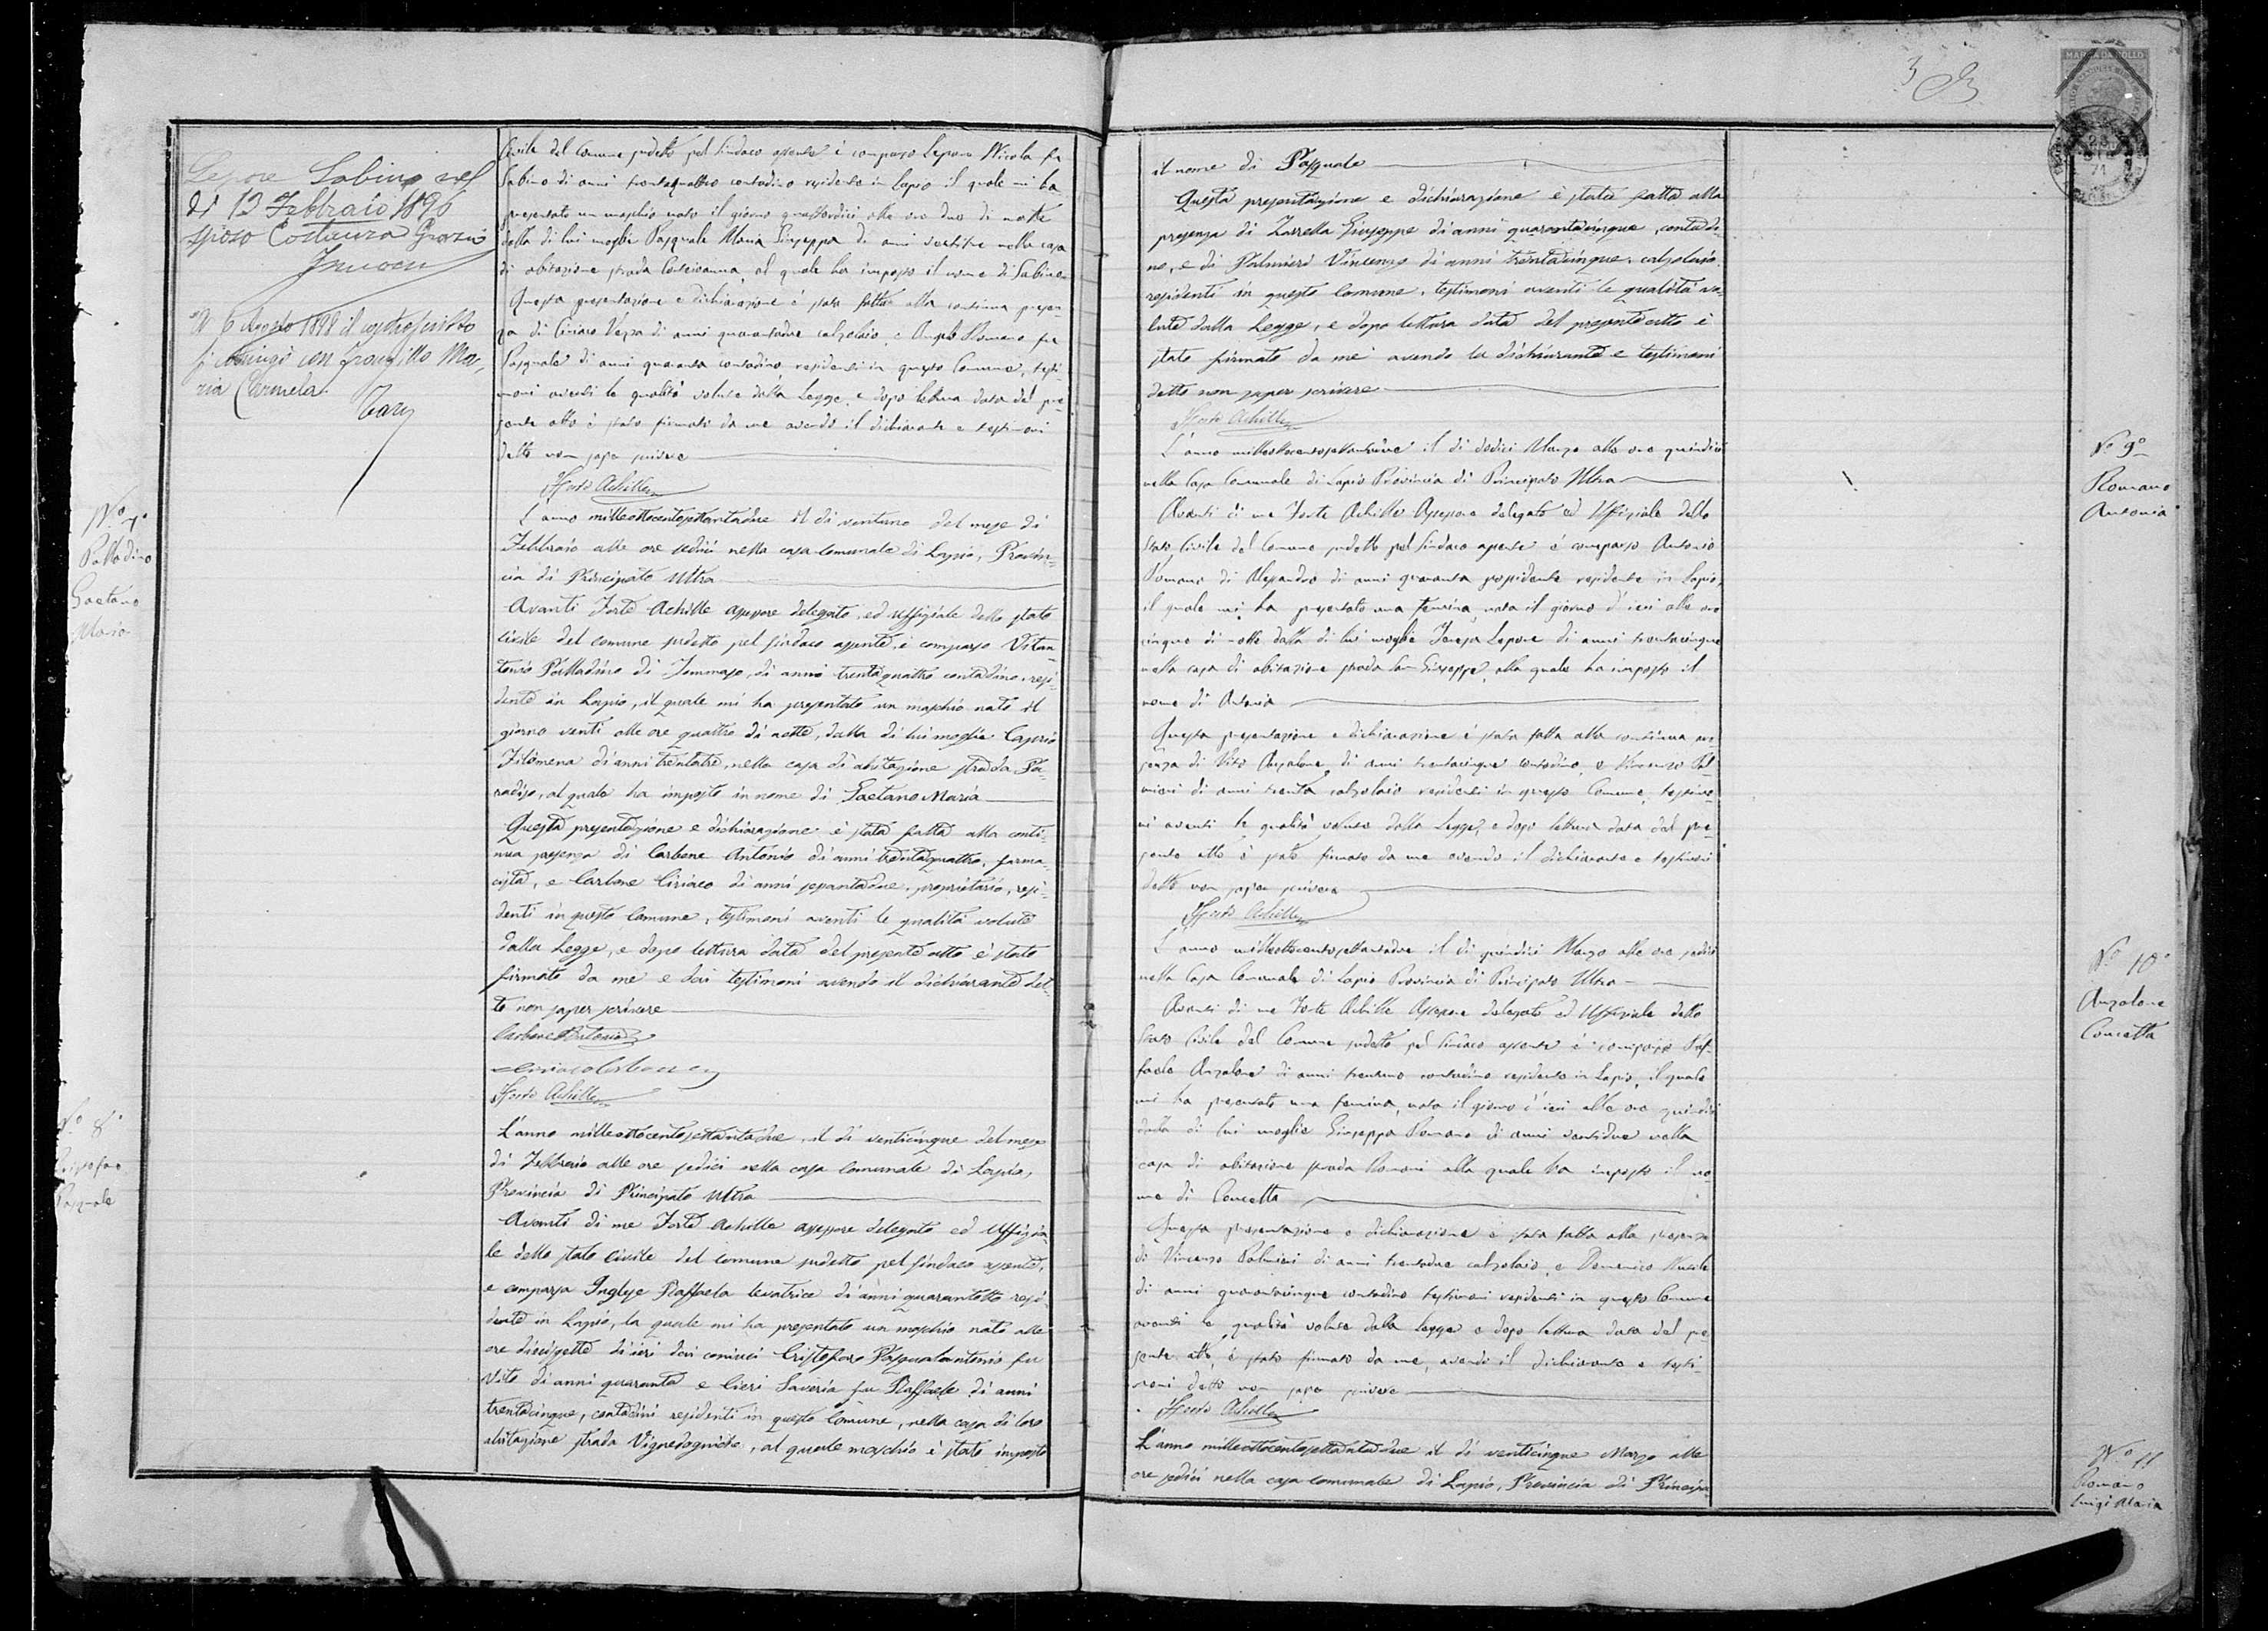 3
MARCA DA BOLLO
Lepore Sabino nel
dì 13 Febbraio 1896
sposò Costanza Grazia
6 Agosto 1898 il
si coniugò con Ma-
ria Carmela
Civile del Comune sudetto pel Sindaco assente è comparso Lepore Nicola fu
Sabino di anni trentaquattro contadino residente in Lapio il quale mi ha
presentato un maschio nato il giorno quattordici alle ore due di notte
dalla di lui moglie Pasquale Maria Giuseppa di anni ventitre nella casa
di abitazione strada al quale ha imposto il nome di Sabino
Questa presentazione e dichiarazione è stata fatta alla continua presen-
za di Ciriaco Vespa di anni quarantadue calzolaio, e Angelo Romano fu
Pasquale di anni quaranta contadino residenti in questo Comune, testi-
moni aventi le qualità volute dalla Legge, e dopo lettura data del pre-
sente atto è stato firmato da me avendo il dichiarante e testimoni
detto non saper scrivere
Forte Achille
N.o 7o
Palladino
Gaetano
Maria
L'anno milleottocentosettantadue il dì ventuno del mese di
Febbraio alle ore sedici nella casa comunale di Lapio, Provin-
cia di Principato Ultra
Avanti Forte Achille assessore delegato, ed uffiziale dello stato
civile del comune sudetto pel sindaco assente, è comparso Vitan-
tonio Palladino di Tommaso, di anni trentaquattro contadino, resi-
dente in Lapio, il quale mi ha presentato un maschio nato il
giorno venti alle ore quattro di notte, dalla di lui moglie Caprio
Filomena di anni trentatre, nella casa di abitazione strada Pa-
radiso, al quale ha imposto in nome di Gaetano Maria
Questa presentazione e dichiarazione è stata fatta alla conti-
nua presenza di Carbone Antonio di anni trentaquattro, farma-
cista, e Carbone Ciriaco di anni sessantadue, proprietario, resi-
denti in questo Comune, testimoni aventi le qualità volute
dalla Legge, e dopo lettura data del presente atto è stato
firmato da me e dai testimoni avendo il dichiarante det-
to non saper scrivere
Carbone Antonio
Ciriaco Carbone
Forte Achille
N.o 8o
Cristofaro
Pasquale
L'anno milleottocentosettantadue, il dì venticinque del mese
di Febbraio alle ore sedici nella casa Comunale di Lapio,
Provincia di Principato Ultra
Avanti di me Forte Achille assessore delegato ed uffizia-
le dello stato civile del comune sudetto pel sindaco assente,
è comparsa Inglese Raffaela levatrice di anni quarantotto resi-
dente in Lapio, la quale mi ha presentato un maschio nato alle
ore diecisette di ieri dai coniuci Cristofaro Pasqualantonio fu
Vito di anni quaranta e Cieri Saveria fu Raffaele di anni
trentacinque, contadini residenti in questo Comune, nella casa di loro
abitazione strada al quale maschio è stato imposto
il nome di Pasquale
Questa presentazione e dichiarazione è stata fatta alla
presenza di Zarrella Giuseppe di anni quarantacinque, contadi-
no, e di Palmieri Vincenzo di anni trentacinque, calzolaio
residenti in questo Comune, testimoni aventi le qualità vo-
lute dalla Legge, e dopo lettura data del presente atto è
stato firmato da me avendo la dichiarante e testimoni
detto non saper scrivere
Forte Achille
No 9o
Romano
Antonia
L'anno milleottocentosettantadue il dì dodici Marzo alle ore quindici
nella Casa Comunale di Lapio Provincia di Principato Ultra
Avanti di me Forte Achille Assessore delegato ed Uffiziale dello
Stato Civile del Comune sudetto pel Sindaco assente è comparso Antonio
Romano di Alessandro di anni quaranta possidente residente in Lapio,
il quale mi ha presentato una femina, nata il giorno d'ieri alle ore
cinque di notte dalla di lui moglie Teresa Lepore di anni trentacinque
nella casa di abitazione strada San Giuseppe, alla quale ha imposto il
nome di Antonia
Questa presentazione e dichiarazione è stata fatta alla continua pre-
senza di Vito Anzalone di anni trentacinque contadino, e Vincenzo Pal-
mieri di anni trenta calzolaio residenti in questo Comune, testimo-
ni aventi le qualità volute dalla Legge, e dopo lettura data del pre-
sente atto è stato firmato da me avendo il dichiarante e testimoni
detto non saper scrivere
Forte Achille
No 10o
Anzalone
Concetta
L'anno milleottocentosettantadue il dì quindici Marzo alle ore sedici
nella Casa Comunale di Lapio Provincia di Principato Ultra
Avanti di me Forte Achille Assessore delegato ed Uffiziale dello
Stato Civile del Comune sudetto pel Sindaco assente è comparso Raf-
faele Anzalone di anni trentuno contadino residente in Lapio, il quale
mi ha presentato una femina, nata il giorno d'ieri alle ore quindici
dalla di lui moglie Giuseppa Romano di anni ventidue nella
casa di abitazione strada Romani alla quale ha imposto il no-
me di Concetta
Questa presentazione e dichiarazione è stata fatta alla presenza
di Vincenzo Palmieri di anni trentadue calzolaio, e Domenico
di anni quarantacinque contadino testimoni residenti in questo Comune
aventi le qualità volute dalla Legge e dopo lettura data del pre-
sente atto, è stato firmato da me, avendo il dichiarante e testi-
moni detto non saper scrivere
Forte Achille
No 11
Romano
Luigi Maria
L'anno milleottocentosettantadue il dì venticinque Marzo alle
ore sedici nella casa comunale di Lapio, Provincia di Principa-